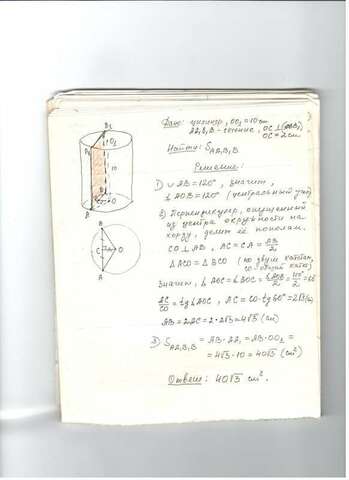 Дано: цилиндр, OO₁ = 10 см
AA₁B₁B - сечение, OC ⊥ (ABB₁)
OC = 2 см
Найти: S AA₁B₁B
Решение:
1) ∪ AB = 120°, значит,
∠ AOB = 120° (центральный угол)
2) Перпендикуляр, опущенный
из центра окружности на
хорду, делит её пополам.
CO ⊥ AB, AC = CA = AB/2
△ACO = △BCO (по двум катетам,
CO - общий катет)
Значит, ∠AOC = ∠BOC = ∠AOB/2 = 120°/2 = 60°
AC/CO = tg∠AOC, AC = CO·tg60° = 2√3 (см)
AB = 2AC = 2·2√3 = 4√3 (см)
3) S AA₁B₁B = AB·AA₁ = AB·OO₁ =
= 4√3·10 = 40√3 (см²)
Ответ: 40√3 см².
B₁
O₁
A₁
10
B
C
O
A
B
C
O
A